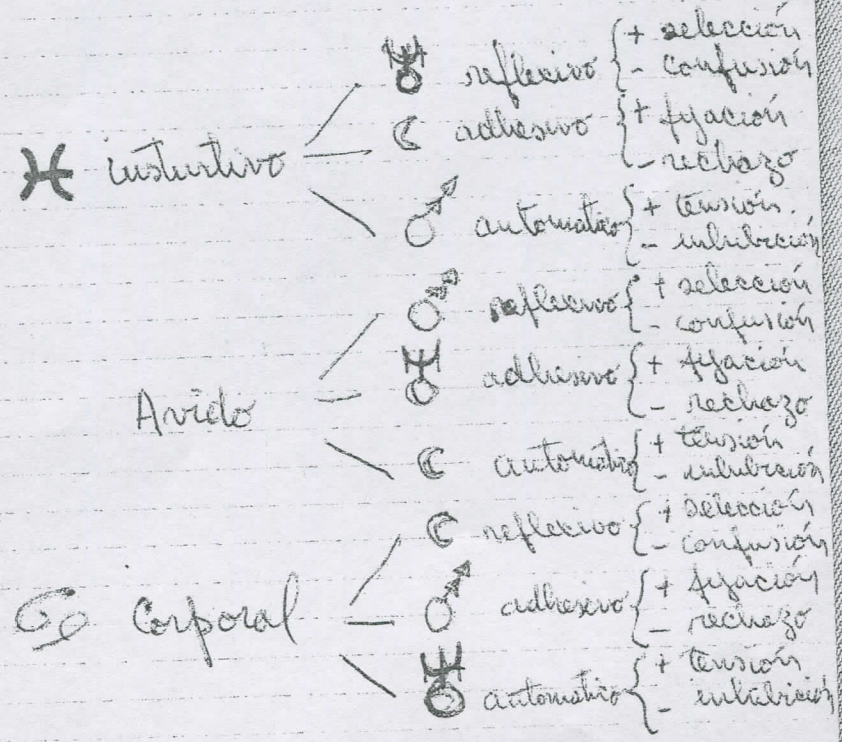 reflexivo { + selección
- confusión
♓ instintivo ☾ adhesivo { + fijación
- rechazo
♂ automático { + tensión.
- inhibición
♂ reflexivo { + selección
- confusión
Avido adhesivo { + fijación
- rechazo
☾ automático { + tensión
- inhibición
☾ reflexivo { + selección
- confusión
♋ Corporal ♂ adhesivo { + fijación
- rechazo
automático { + tensión
- inhibición